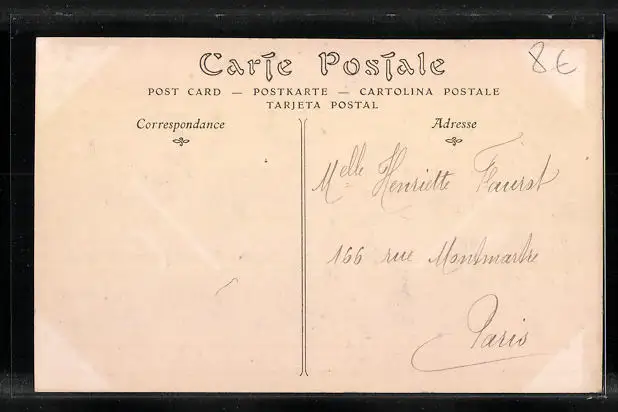 Carte Postale
8€
POST CARD — POSTKARTE — CARTOLINA POSTALE
TARJETA POSTAL
Correspondance
Adresse
Melle Henriette
166 rue Montmartre
Paris